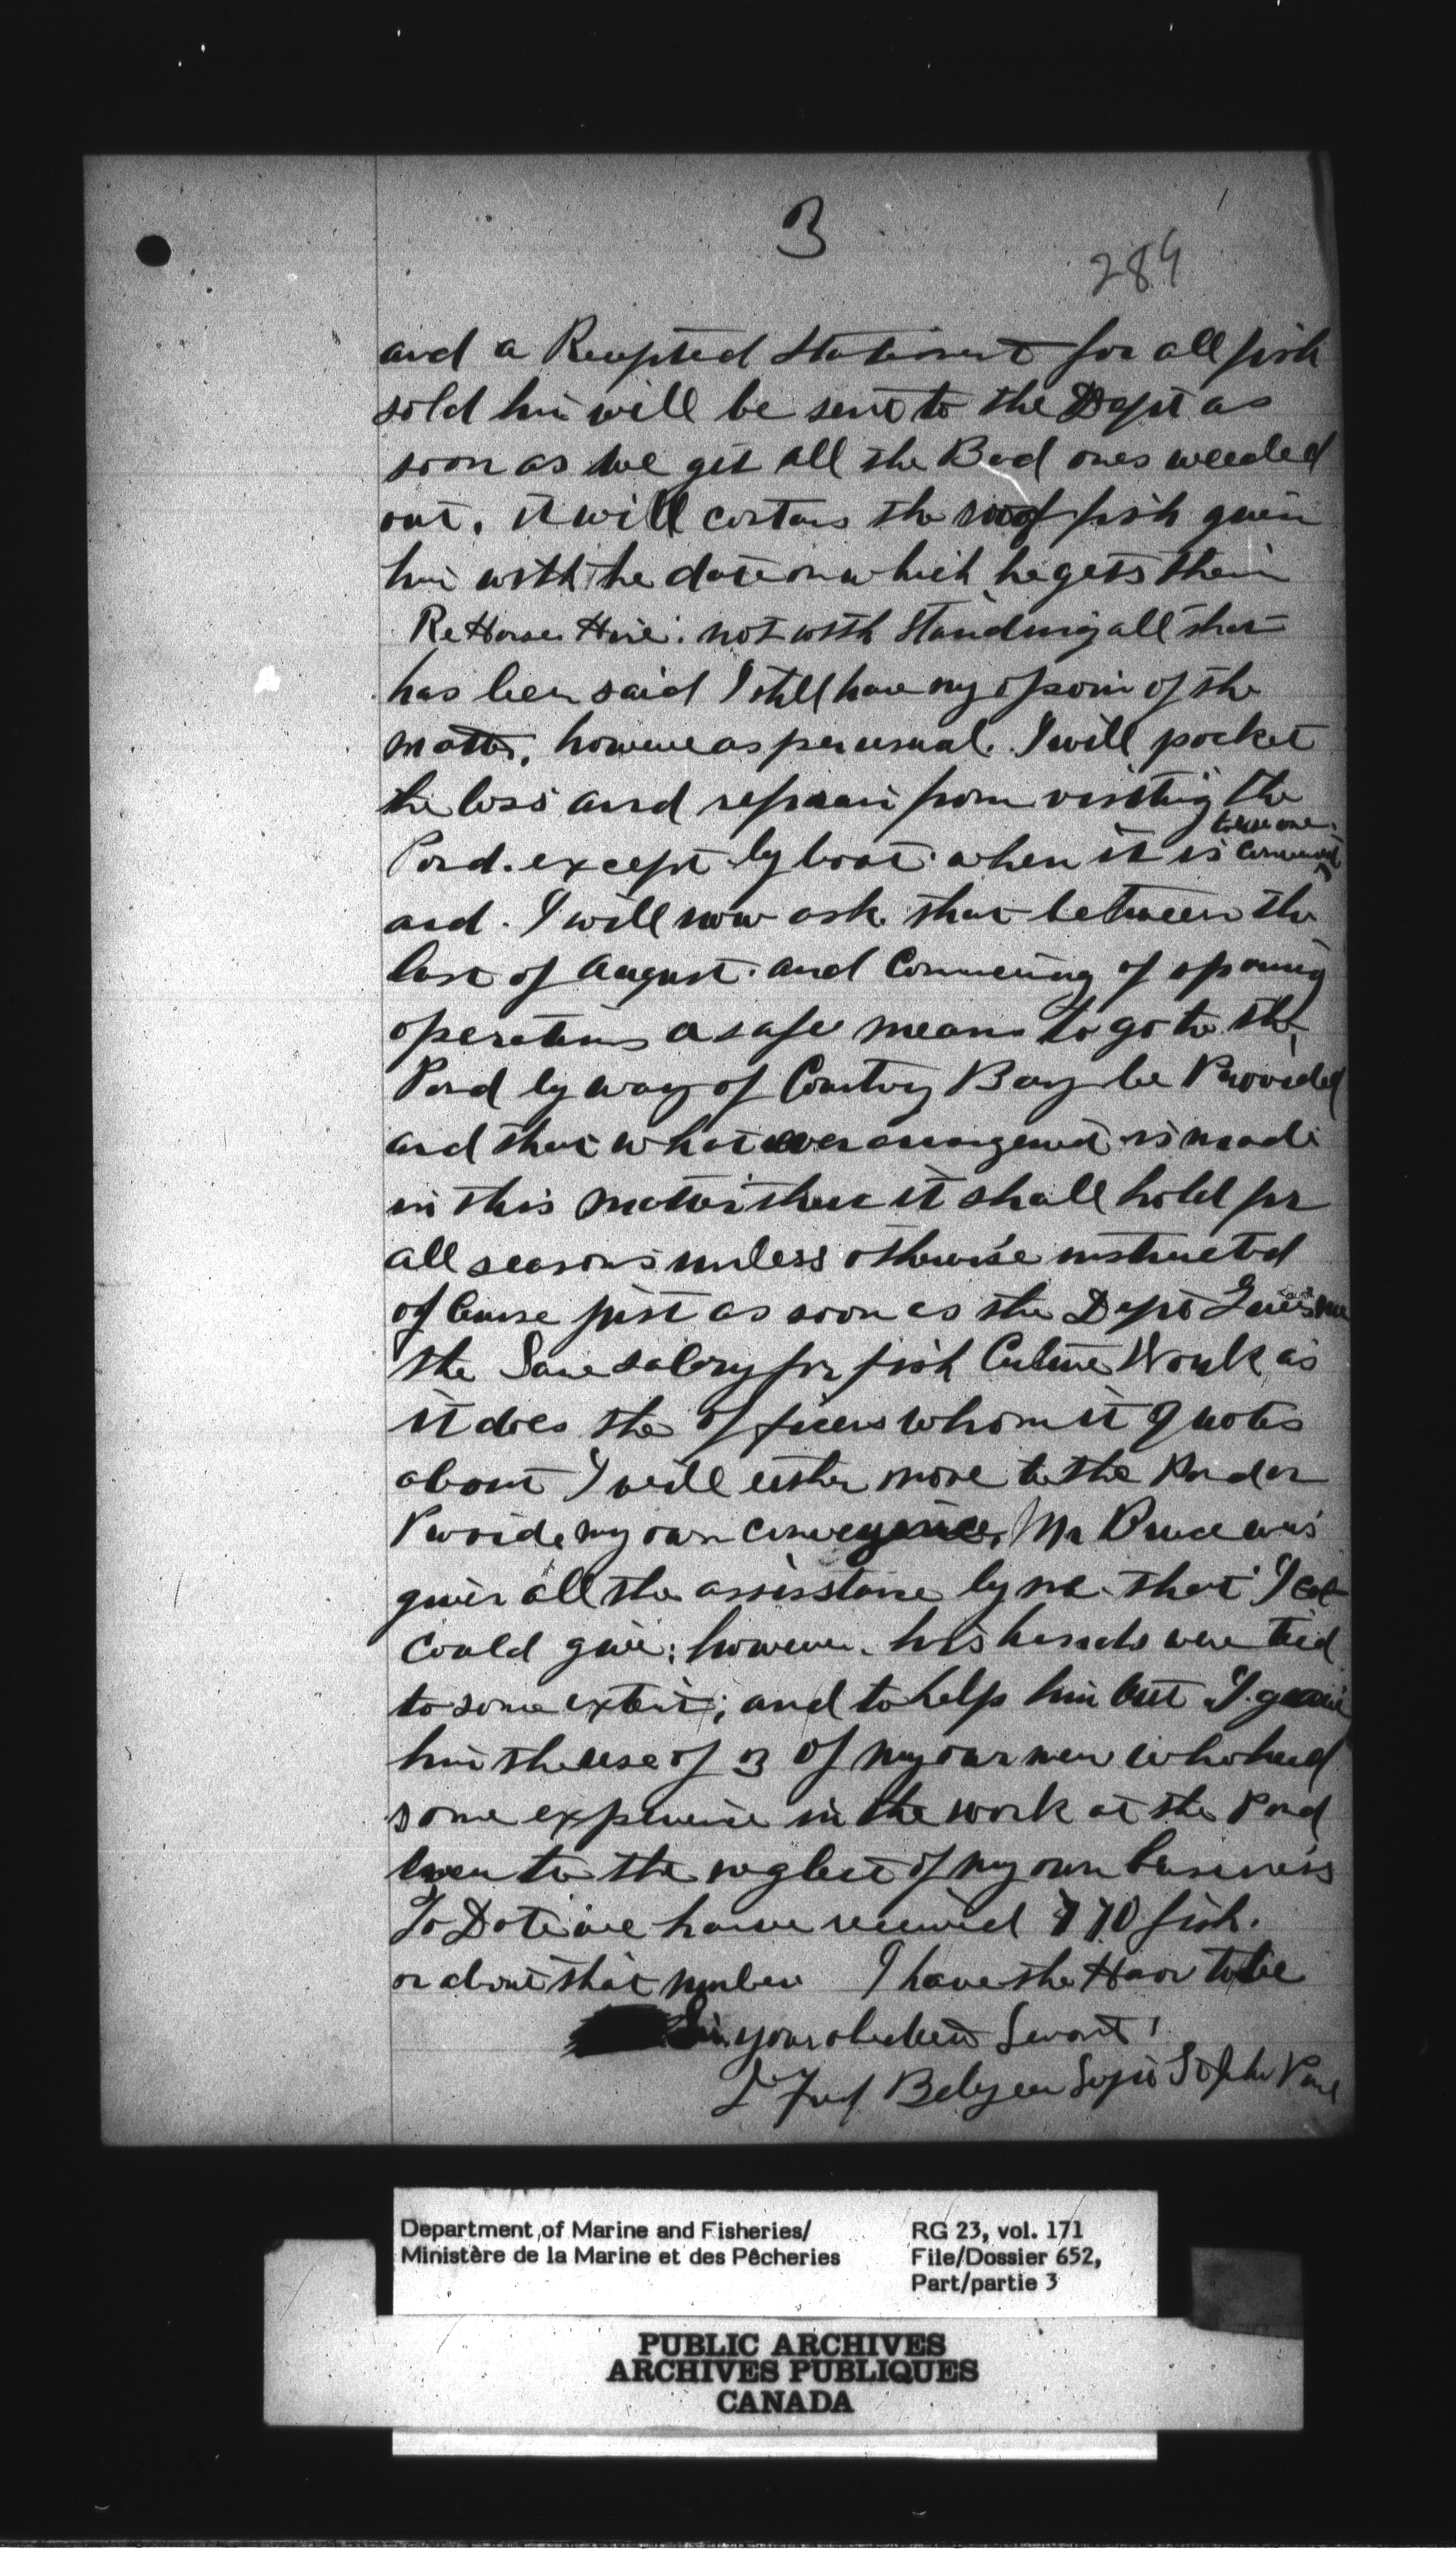 3
289
and a Recepted Statement for all fish
sold him will be sent to the Dept as
soon as we get all the Bad ones weeded
out. it will contans the no of fish given
him with the date on which he gets them
Re Horse Hire. not with standing all that
has been said I still have my opoin of the
matter, however as per usual. I will pocket
the loss and refrain from visiting the
to use one.
Pond. except by boat. when it is convenient
and. I will now ask that between the
last of August. and Commencing of spaning
operations a safe means to go to the
Pond by way of Courtney Bay be Provided
and that what ever arrangement is made
in this matter that it shall hold for
all seasons unless otherwise instructed
of Course just as soon as the Dept Gives me
the Same salary for fish Culture Work as
it does the officers whom it quotes
about I will either move to the Pond or
Provide my own conveyance. Mr Bruce was
given all the assistance by me that I
could give; however. his hands were tied
to some extent; and to help him out I gave
him the use of 3 of my own men who had
some experience in the work at the Pond
even to the neglect of my own business
To Date we have received 770 fish.
or about that number I have the Honor to be
Sir your obedient Servant!
J Fred Belyea Supt St John Pond
Department of Marine and Fisheries/
Ministère de la Marine et des Pêcheries
RG 23, vol. 171
File/Dossier 652,
Part/partie 3
PUBLIC ARCHIVES
ARCHIVES PUBLIQUES
CANADA